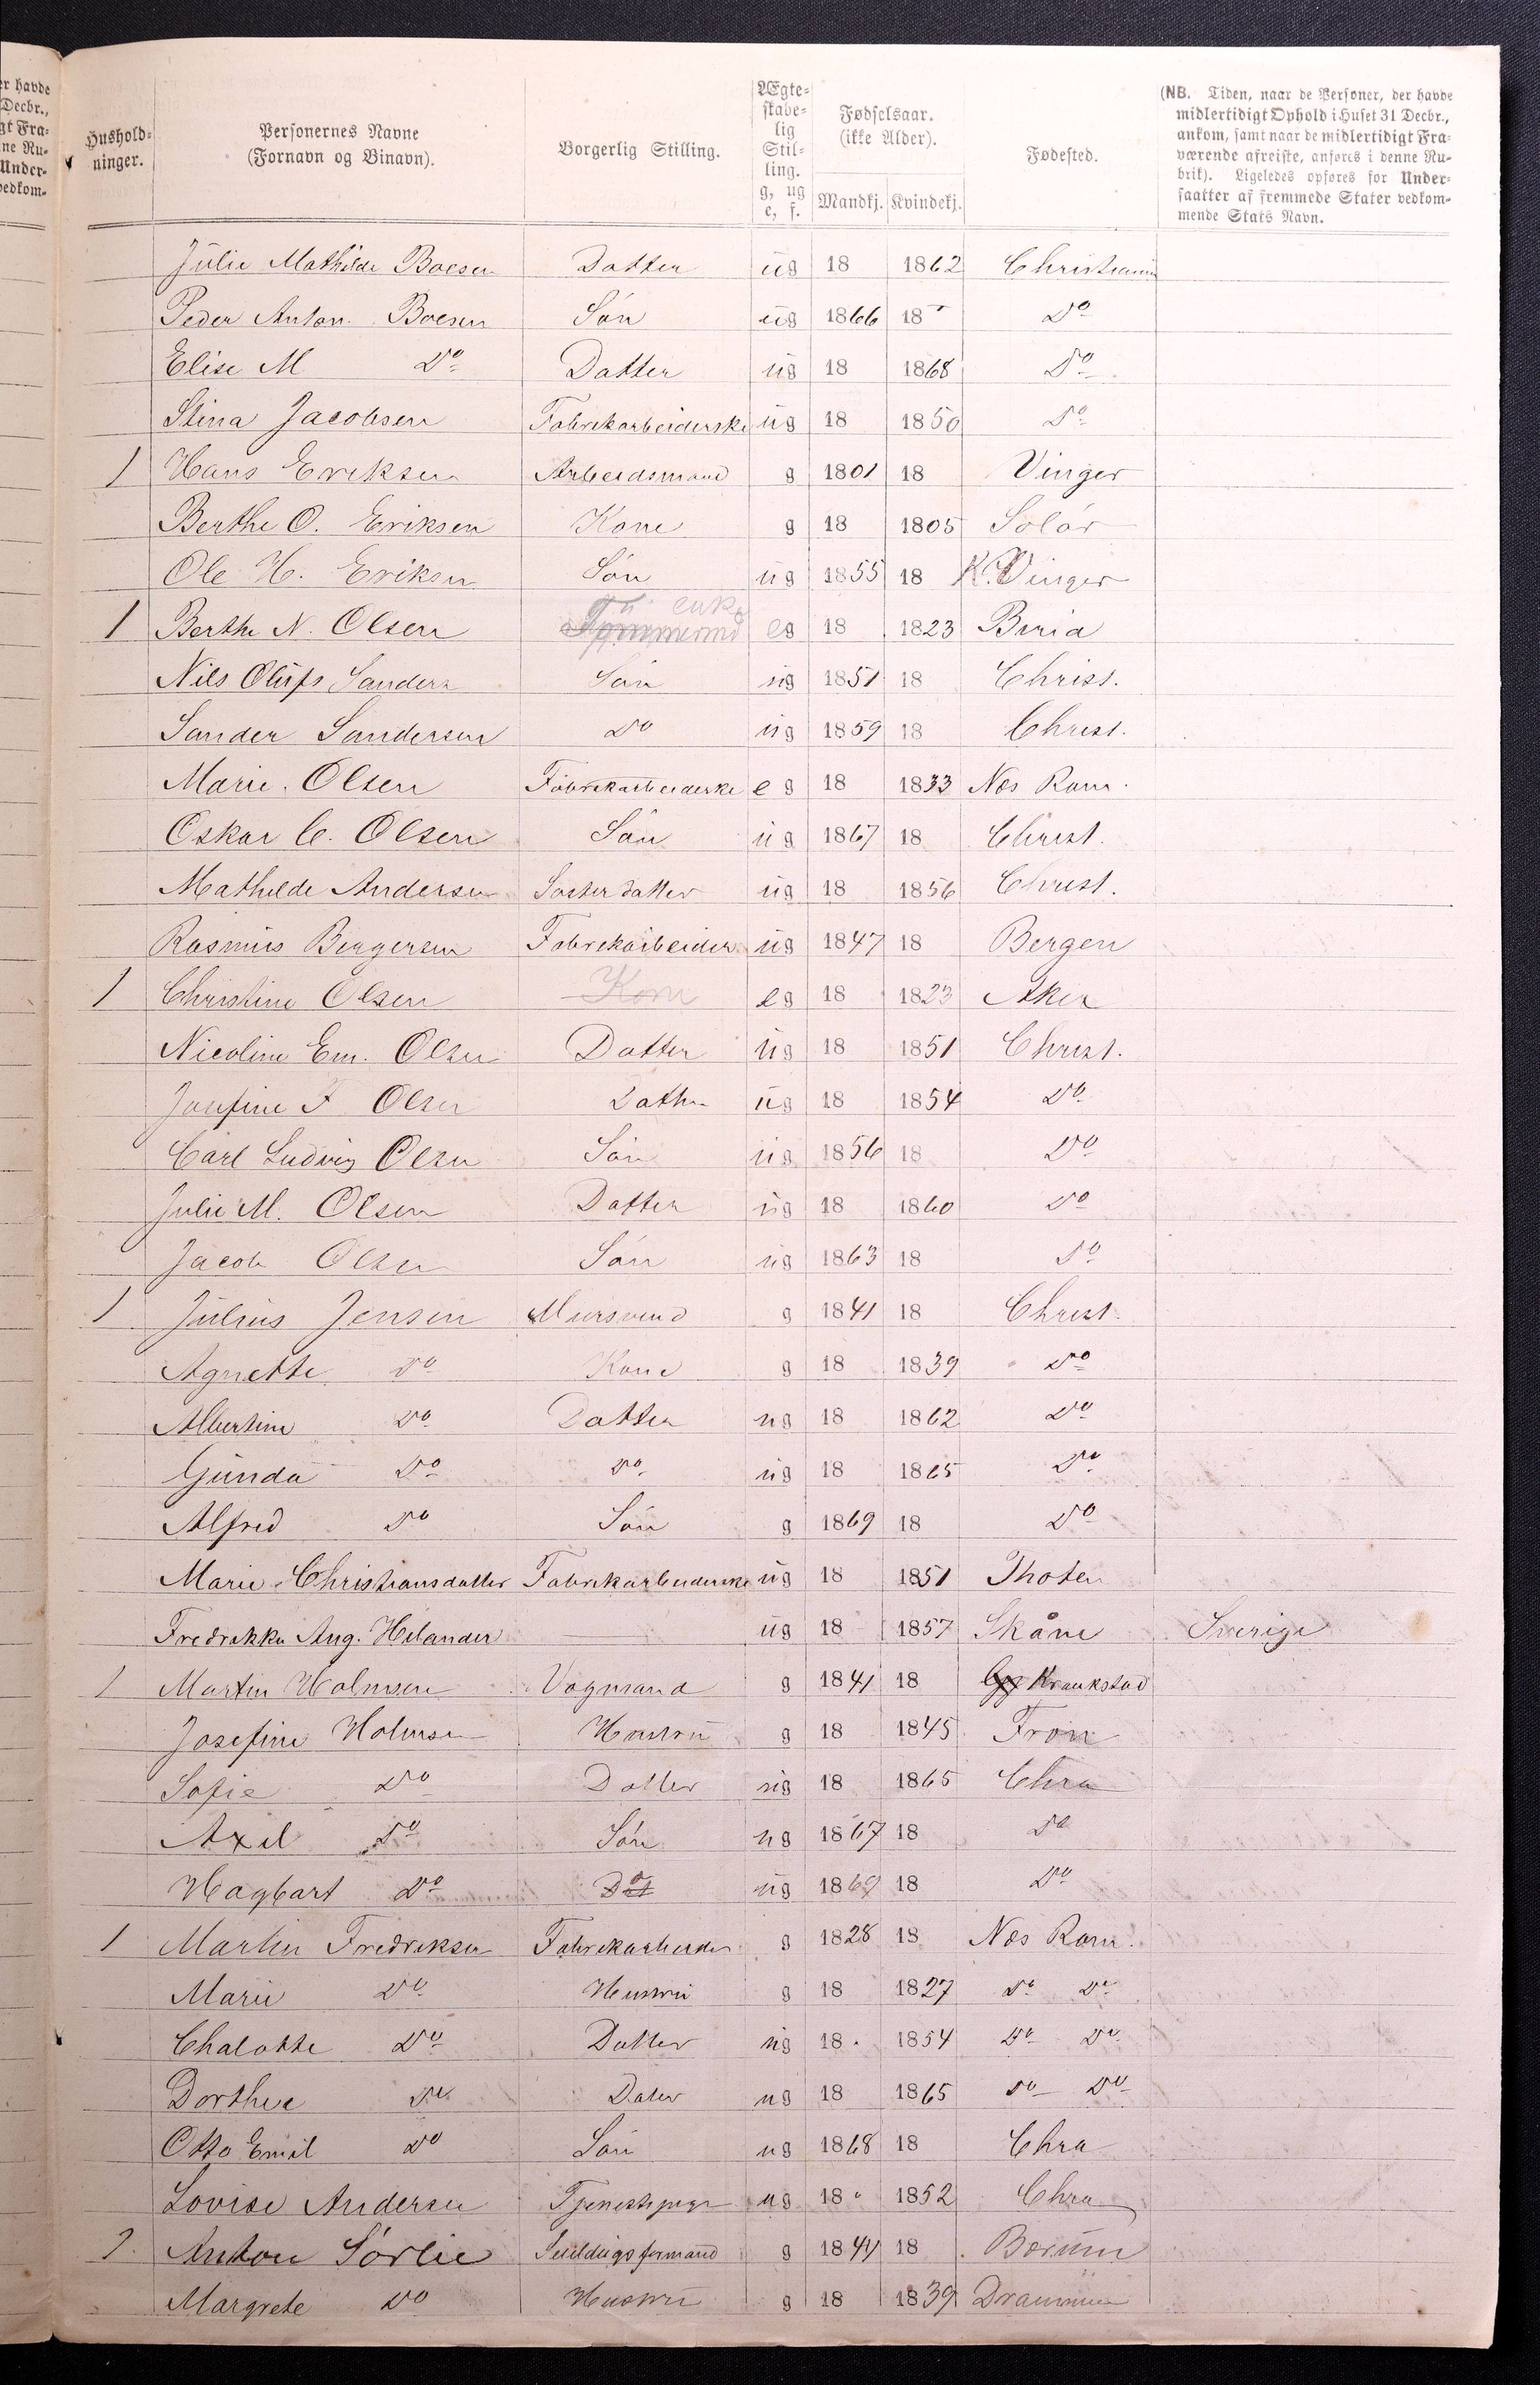 er havde
Decbr.,
gt Fra-
ne Ru-
Under-
vedkom-
Hushold-
ninger.
Personernes Navne
(Fornavn og Binavn).
Borgerlig Stilling.
Ægte-
skabe-
lig
Stil-
ling.
g, ug
e, f.
Fødselsaar.
(ikke Alder).
Mandkj. Kvindekj.
Fødested.
(NB. Tiden, naar de Personer, der havde
midlertidigt Ophold i Huset 31 Decbr.,
ankom, samt naar de midlertidigt Fra-
værende afreiste, anføres i denne Ru-
brik). Ligeledes opføres for Under-
saatter af fremmede Stater vedkom-
mende Stats Navn.
Julie Mathilde Boesen Datter ug 18 1862 Christiania
Peder Anton Boesen Søn ug 1866 18 Do
Elise M Do Datter ug 18 1868 Do
Stina Jacobsen Fabrikarbeiderske ug 18 1850 Do
1 Hans Eriksen Arbeidsmand g 1801 18 Vinger
Berthe O. Eriksen Kone g 18 1805 Solør
Ole H. Eriksen Søn ug 1855 18 K. Vinger
1 Berthe N. Olsen enke eg 18 1823 Biria
Nils Olufs Sanders Søn ug 1851 18 Christ.
Sander Sandersen Do ug 1859 18 Christ.
Marie Olsen Fabrikarbeiderske eg 18 1833 Næs Rom.
Oskar C. Olsen Søn ug 1867 18 Christ.
Mathilde Andersen Søsterdatter ug 18 1856 Christ.
Rasmus Birgersen Fabrikarbeider ug 1847 18 Bergen
1 Christine Olsen Kone eg 18 1823 Aker
Nicoline Em. Olsen Datter ug 18 1851 Christ.
Josefine F Olsen Datter ug 18 1854 Do
Carl Ludvig Olsen Søn ug 1856 18 Do
Julie M. Olsen Datter ug 18 1860 Do
Jacob Olsen Søn ug 1863 18 Do
1 Julius Jensen Mursvend g 1841 18 Christ.
Agnethe Do Kone g 18 1839 Do
Albertine Do Datter ug 18 1862 Do
Gunda Do Do ug 18 1865 Do
Alfred Do Søn g 1869 18 Do
Marie Christiansdatter Fabrikarbeiderske ug 18 1851 Thoten
Fredrikke Aug. Helander ug 18 1857 Skåne Sverige
1 Martin Holmsen Vogmand g 1841 18 Kraakstad
Josefine Holmsen Hustru g 18 1845 Fron
Sofie Do Datter ug 18 1865 Chra
Axel Do Søn ug 1867 18 Do
Hagbart Do Do ug 1869 18 Do
1 Martin Fredriksen Fabrikarbeider g 1828 18 Næs Rom.
Marie Do Hustru g 18 1827 Do Do
Chalotte Do Datter ug 18 1854 Do Do
Dorthea Do Dater ug 18 1865 Do Do
Otto Emil Do Søn ug 1868 18 Chra
Lovise Andersen Tjenestepige ug 18 1852 Chra
1 Anton Sørlie g 1844 18 Bærum
Margrete Do Hustru g 18 1839 Drammen